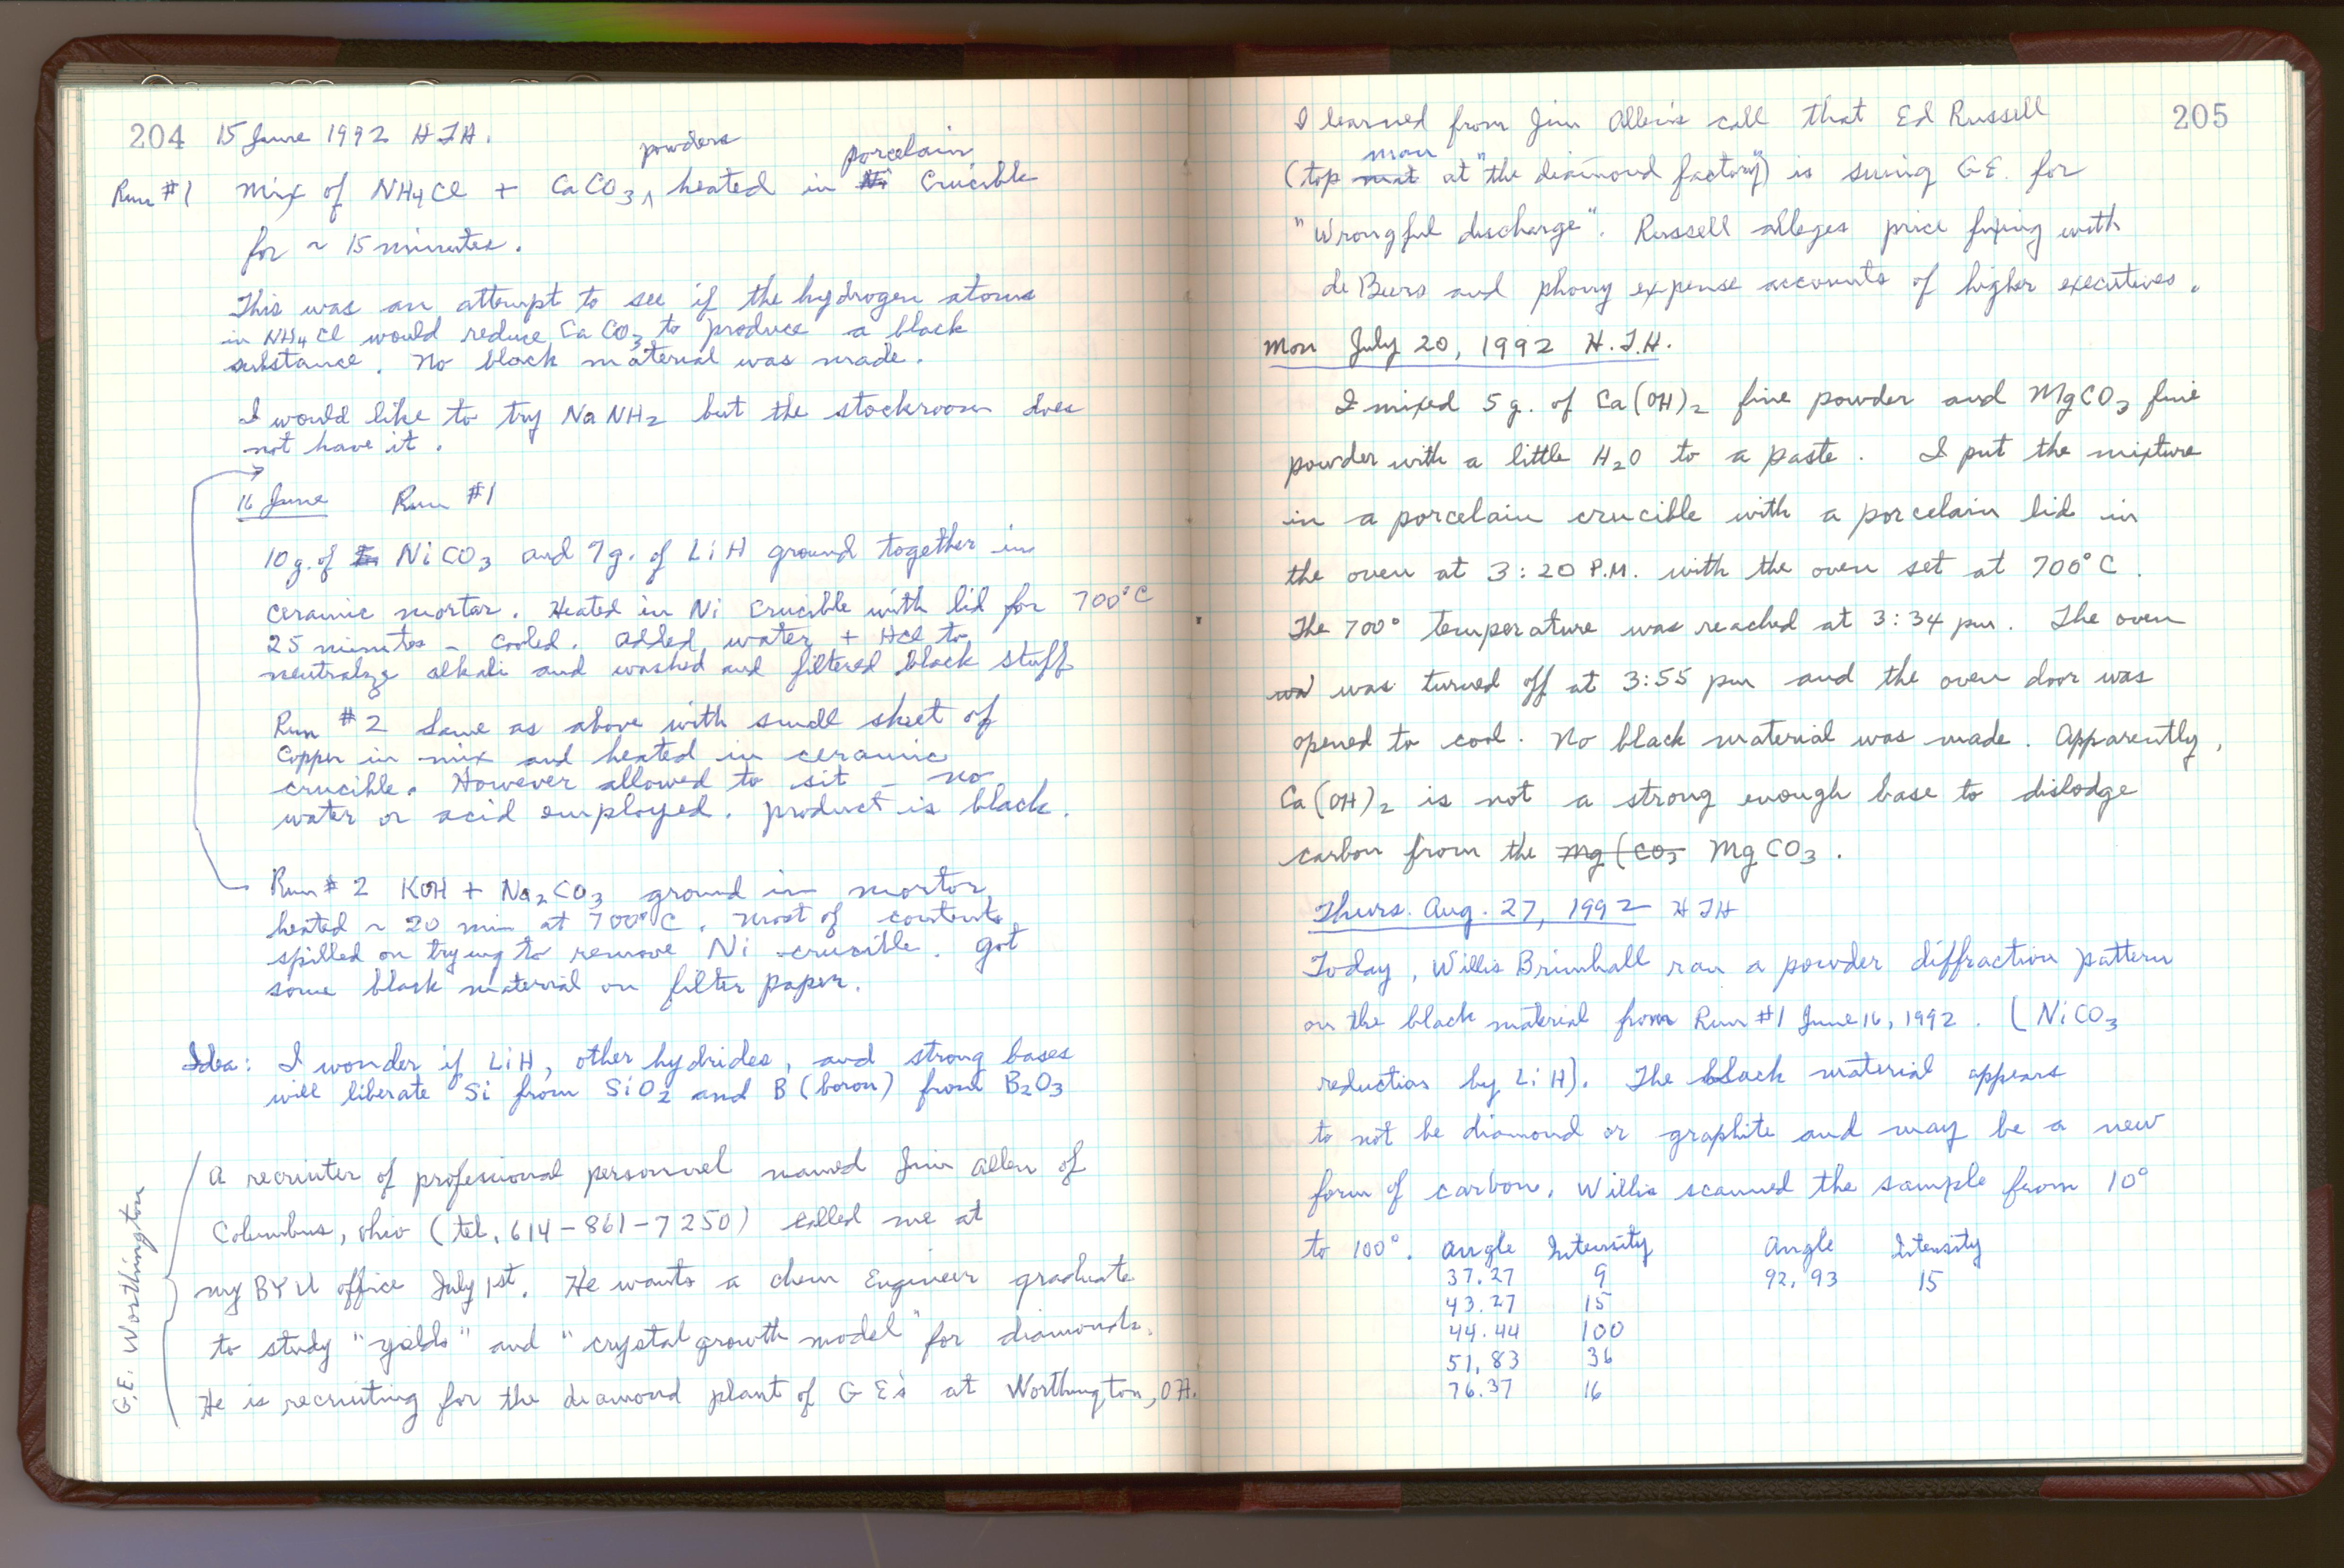 204 15 June 1992 HTH.
powders porcelain
Run #1 mix of NH4Cl + CaCO3 ^ heated in Ni Crucible
for ~ 15 minutes.
This was an attempt to see if the hydrogen atoms
in NH4Cl would reduce CaCO3 to produce a black
substance. No black material was made.
I would like to try NaNH2 but the stockroom does
not have it.
16 June Run #1
10 g. of NiCO3 and 7 g. of LiH ground together in
ceramic mortar. Heated in Ni Crucible with lid for 700°C
25 minutes - cooled. Added water + HCl to
neutralize alkali and washed and filtered black stuff
Run #2 Same as above with small sheet of
Copper in mix and heated in ceramic
crucible. However allowed to sit - no
water or acid employed. product is black.
Run # 2 KOH + Na2CO3 ground in mortor
heated ~ 20 min at 700°C. most of contents
spilled on trying to remove Ni crucible. Got
some black material on filter paper.
Idea: I wonder if LiH, other hydrides, and strong bases
will liberate Si from SiO2 and B (boron) from B2O3
G.E. Worthington
A recruiter of professional personnel named Jim Allen of
Columbus, Ohio (tel. 614-861-7250) called me at
my BYU office July 1st. He wants a chem Engineer graduate
to study "yields" and "crystal growth model" for diamonds.
He is recruiting for the diamond plant of GE's at Worthington, OH.
I learned from Jim Allen's call that Ed Russell 205
man
(top mat at "the diamond factory") is suing GE. for
"Wrongful discharge". Russell alleges price fixing with
de Beers and phony expense accounts of higher executives.
Mon July 20, 1992 H.T.H.
I mixed 5 g. of Ca(OH)2 fine powder and MgCO3 fine
powder with a little H2O to a paste. I put the mixture
in a porcelain crucible with a porcelain lid in
the oven at 3:20 P.M. with the oven set at 700°C.
The 700° temperature was reached at 3:34 pm. The oven
wa was turned off at 3:55 pm and the oven door was
opened to cool. No black material was made. Apparently,
Ca(OH)2 is not a strong enough base to dislodge
carbon from the Mg(CO3 MgCO3.
Thurs. Aug. 27, 1992 HTH
Today, Willis Brimhall ran a powder diffraction pattern
on the black material from Run #1 June 16, 1992. (NiCO3
reduction by LiH). The black material appears
to not be diamond or graphite and may be a new
form of carbon. Willis scanned the sample from 10°
to 100°. Angle Intensity Angle Intensity
37.27 9 92.93 15
43.27 15
44.44 100
51.83 36
76.37 16